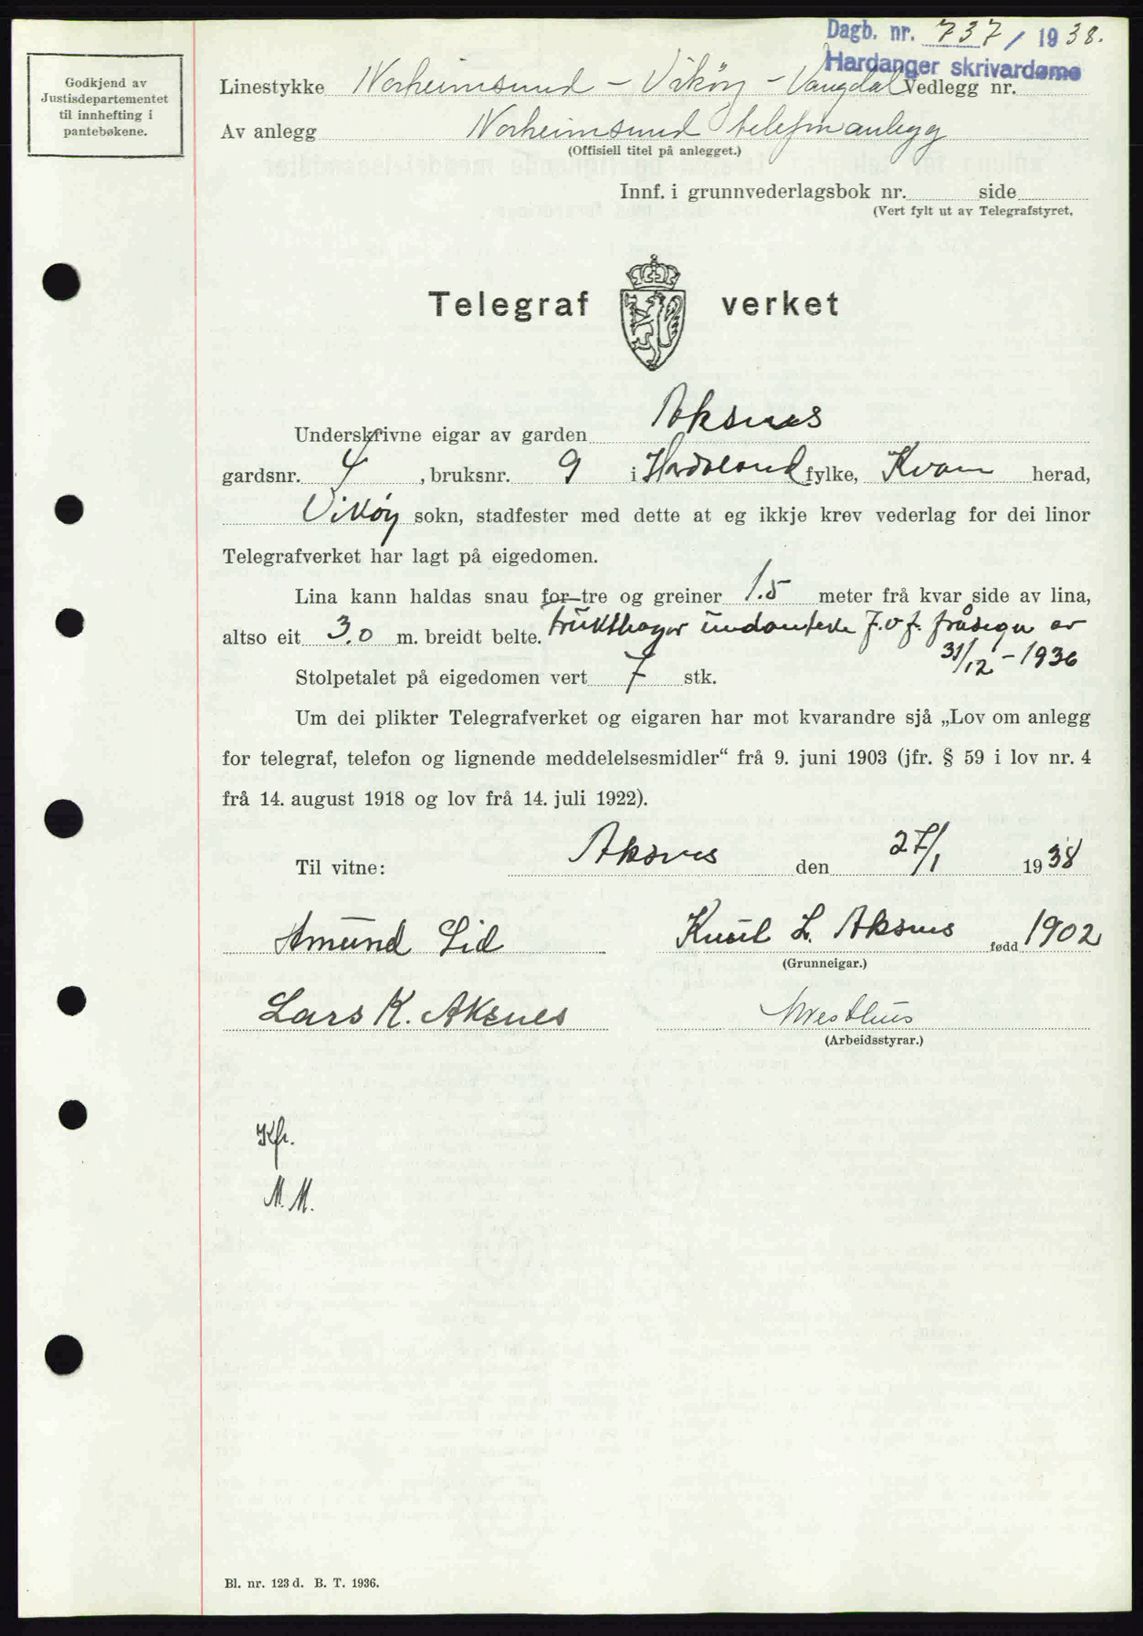 Dagb. nr. 737 / 1938.
Hardanger skrivardøme
Godkjend av
Justisdepartementet
til innhefting i
pantebøkene.
Linestykke Norheimsund - Vikøy - Vangdal Vedlegg nr.
Av anlegg Norheimsund telefonanlegg
(Offisiell titel på anlegget.)
Innf. i grunnvederlagsbok nr. side
(Vert fylt ut av Telegrafstyret.
Telegraf verket
Underskrivne eigar av garden Aksnes
gardsnr. 4, bruksnr. 9 i Hordaland fylke, Kvam herad,
Vikøy sokn, stadfester med dette at eg ikkje krev vederlag for dei linor
Telegrafverket har lagt på eigedomen.
Lina kann haldas snau for tre og greiner 1.5 meter frå kvar side av lina,
altso eit 3.0 m. breidt belte. frukthagar undantekne J.v.f. fråsegn av
31/12 - 1936
Stolpetalet på eigedomen vert 7 stk.
Um dei plikter Telegrafverket og eigaren har mot kvarandre sjå „Lov om anlegg
for telegraf, telefon og lignende meddelelsesmidler“ frå 9. juni 1903 (jfr. § 59 i lov nr. 4
frå 14. august 1918 og lov frå 14. juli 1922).
Til vitne: Aksnes den 27/1 1938
Amund Lid Knut L. Aksnes født 1902
(Grunneigar.)
Lars K. Aksnes Westhus
(Arbeidsstyrar.)
Kfr.
M.M.
Bl. nr. 123 d. B. T. 1936.